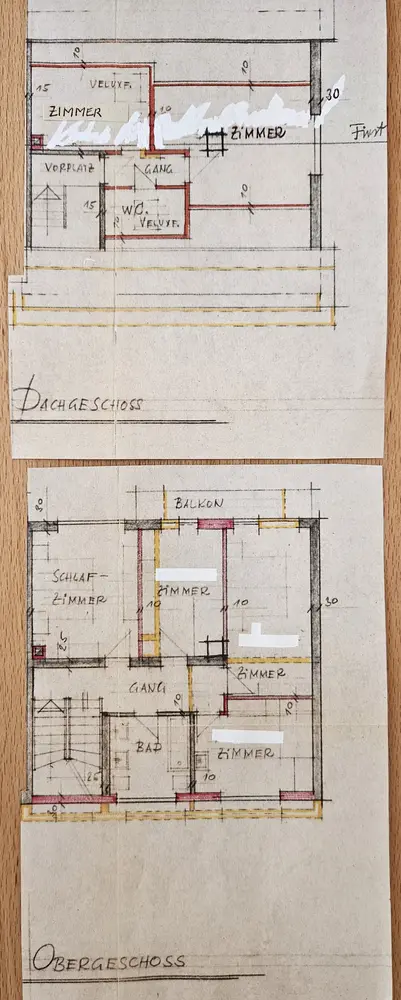 10
10
VELUXF.
15
30
ZIMMER
10
ZIMMER
First
VORPLATZ
GANG
15
10
WC.
VELUXF.
DACHGESCHOSS
30
BALKON
SCHLAF-
ZIMMER
ZIMMER
10
10
30
25
ZIMMER
GANG
10
10
BAD
ZIMMER
25
10
30
OBERGESCHOSS